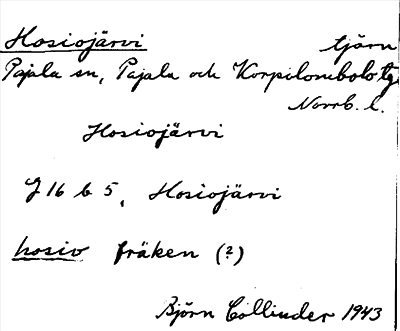 Hosiojärvi tjärn
Pajala sn, Pajala och Korpilombolo tg
Norrb. l.
Hosiojärvi
J 16 b 5, Hosiojärvi
hosio fräken (?)
Björn Collinder 1943